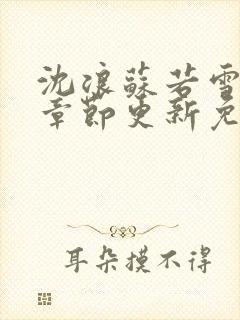 沈浪蘇若雪
章節更新免
耳朵摸不得